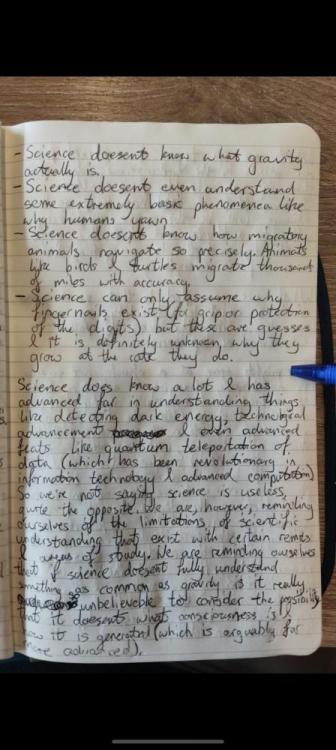 - Science doesent know what gravity
actually is.
- Science doesent even understand
some extremely basic phenomenea like
why humans yawn
- Science doesent know how migratory
animals navigate so precisely. Animals
like birds & turtles migrate thousands
of miles with accuracy.
- Science can only assume why
fingernails exist (for grip or protection
of the digits) but these are guesses
& it is definitely unknown why they
grow at the rate they do.
Science does know a lot & has
advanced far in understanding things
like detecting dark energy, technological
advancement & even advanced
feats like quantum teleportation of
data (which has been revolutionary in
information technology & advanced computation)
So we're not saying science is useless,
quite the opposite. We are, however, reminding
ourselves of the limitations of scientific
understanding that exist with certain
& areas of study. We are reminding ourselves
that if science doesent fully understand
something as common as gravity is it really
unbelievable to consider the possibility
that it doesents what consciousness is &
how it is generated (which is arguably far
more advanced).